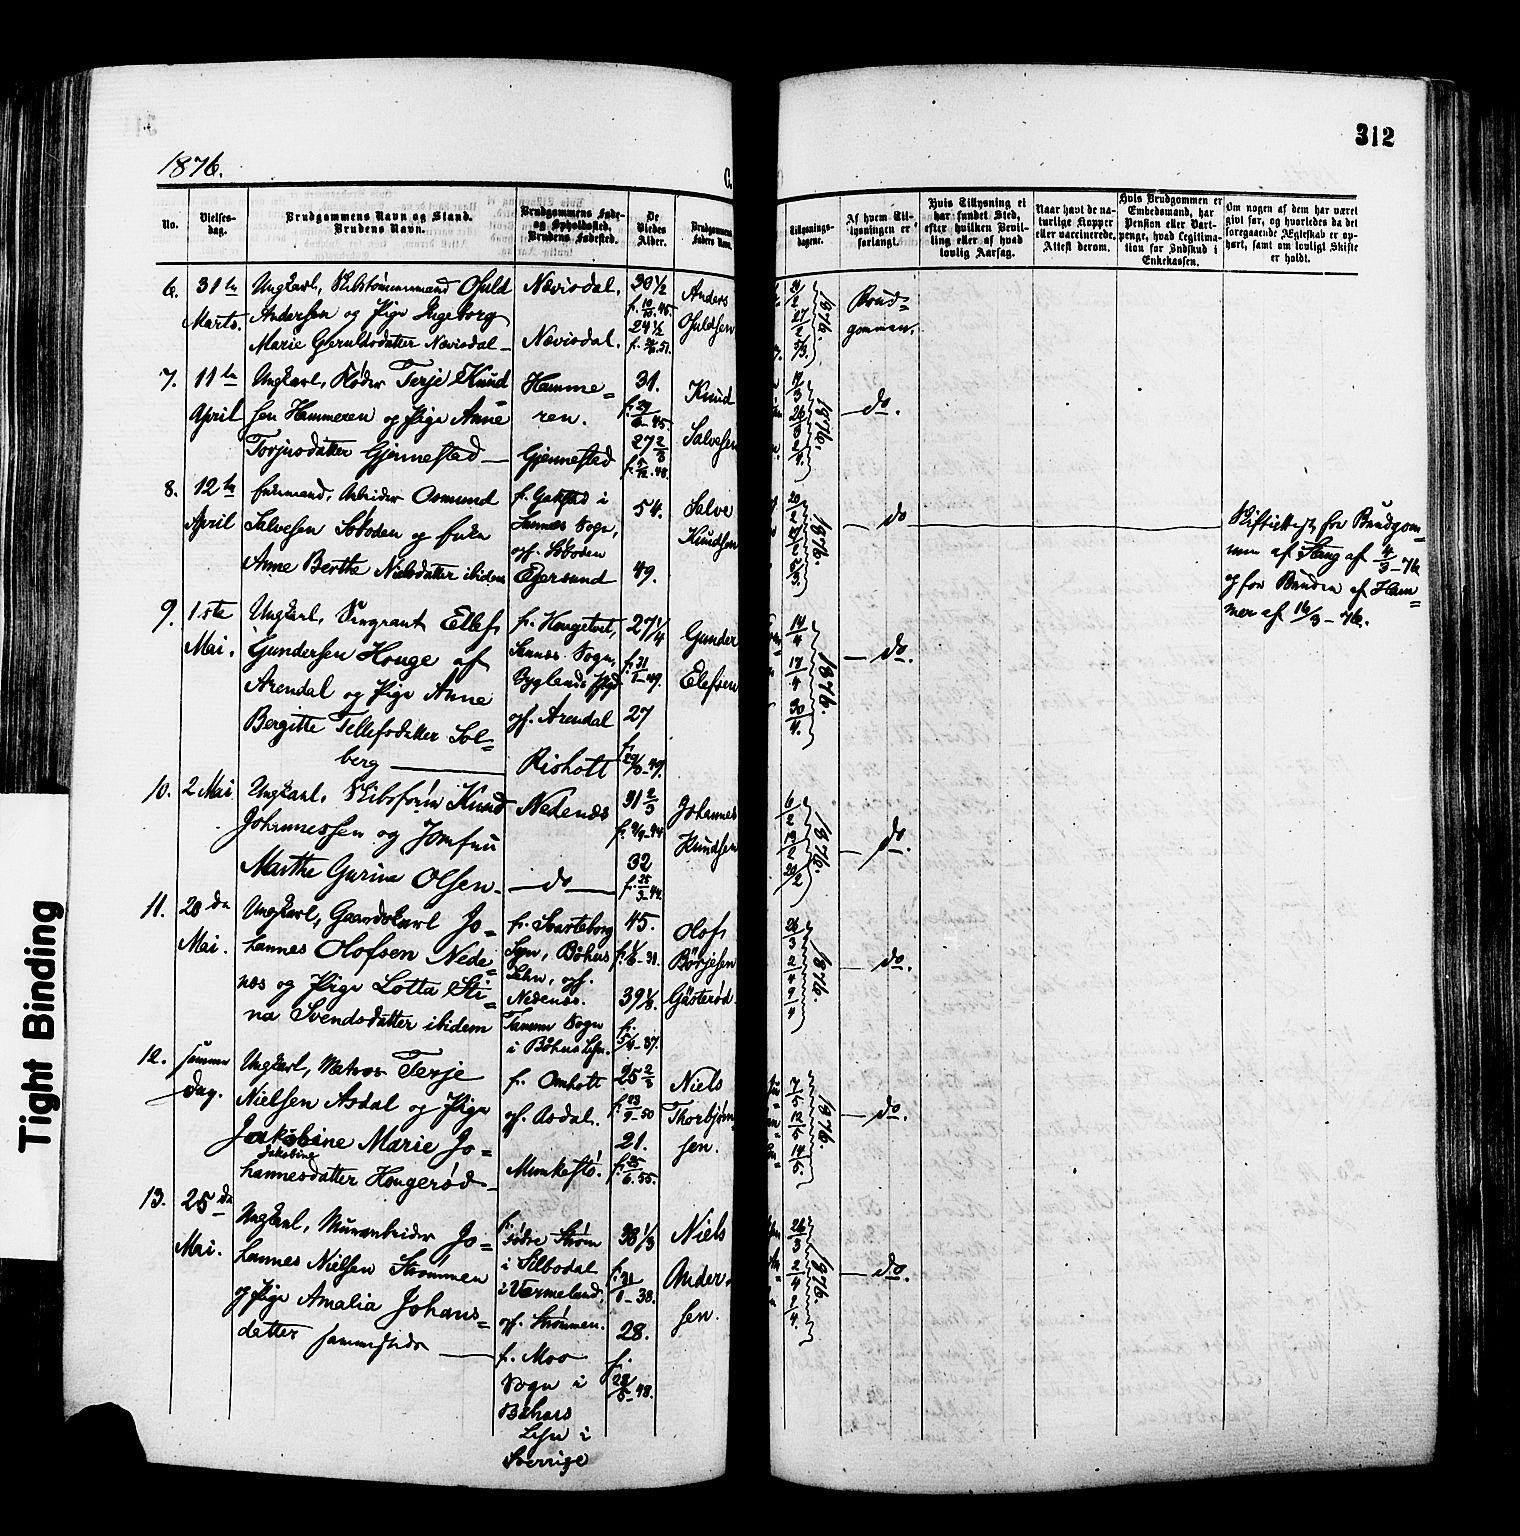 312
1876.
No.
Vielses-
dag.
Brudgommens Navn og Stand.
Brudens Navn.
Brudgommens Føde-
og Opholdssted.
Brudens Fødested.
De
Viedes
Alder.
Brudgommens
Faders Navn.
Tillysnings-
dagene.
Af hvem Til-
lysningen er
forlangt.
Hvis Tillysning ei
har fundet Sted,
efter hvilken Bevil-
ling eller af hvad
lovlig Aarsag.
Naar havt de na-
turlige Kopper
eller vaccinerede.
Attest derom.
Hvis Brudgommen er
Embedsmand, har
Pension eller Vart-
penge, hvad Legitima-
tion for Indskud i
Enkekassen.
Om nogen af dem har været
gift før, og hvorledes da det
foregaaende Ægteskab er op-
hørt, samt om lovligt Skifte
er holdt.
6. 31te
Marts.
Ungkarl, Skibstømmermand Osuld
Andersen og Pige Ingeborg
Marie Geruldsdatter Nævisdal
Nævisdal.
Nævisdal.
30 1/2
f. 10/10-45.
24 1/2
Anders
Osuldsen
1876.
Brud=
gommen.
7. 11te
April
Ungkarl, Reder Terje Knud
sen Hammeren og Pige Anne
Torjusdatter Gjennestad
Hamme=
ren.
Gjennestad
31.
27 2/3
Knud
Salvesen
1876.
do.
8. 12te
April
Enkemand, Arbeider Osmund
Salvesen Søboden og Enke
Anne Berthe Nielsdatter ibidem
f. Gakstad i
Sannes Sogn,
opf. Søboden
Egersund
54.
49.
Salve
Knudsen
1876.
do
Skifteattest for Brudgom=
men af Stang af 4/3-76
og for Bruden af Ham=
mer af 16/3-76.
9. 1.ste
Mai.
Ungkarl, Sergeant Ellef
Gundersen Houge af
Arendal og Pige Anne
Bergitte Tellefsdatter Sol=
berg
f. Hougetvet,
Sannes Sogn,
Byglands Pgd
opf. Arendal
Risholt
27 1/4
f. 31/1-49.
27
Gunder
Elefsen
14/4
17/4
30/4.
1876.
do.
10. 2 Mai
Ungkarl, Skibsfører Knud
Johannessen og Jomfru
Marthe Gurine Olsen
Nedenæs
do
31 2/3
32
f. 25/3-44.
Johannes
Knudsen
6/2
13/2
20/2
1876.
do.
11. 20de
Mai.
Ungkarl, Gaardskarl Jo=
hannes Olofsen Nede=
næs og Pige Lotta Sti=
na Svendsdatter ibidem
f. Svarteborg
Sogn, Bohus
Lehn, opf.
Nedenæs.
Tanum Sogn
i Bohus Lehn.
45.
39 1/8.
Olof
Börjesen
Gästeröd
26/3
2/4
9/4
1876.
do.
12. samme
Dag.
Ungkarl, Matros Terje
Nielsen Asdal og Pige
Jakobine Marie Jo=
Jakobine
hannesdatter Hougerød
f. Omholt
opf. Asdal.
Munkestø.
25 2/3
f. 23/9-50
21.
f. 25/6.55.
Niels
Thorbjørn
sen.
7/5
12/5
14/5.
1876.
do.
13. 25de
Mai.
Ungkarl, Murarbeider Jo=
hannes Nielsen Strømmen
og Pige Amalia Johans=
datter sammesteds
f.
Södre Ström
i Silbodal
i Værmeland,
opf. Strømmen.
f. Moo
Sogn i
Bohus
Lehn i
Sverrige
38 1/3
f. 21/1-38.
28.
f.
Niels
Ander=
sen.
26/3
2/4
9/4.
1876.
do.
Tight Binding